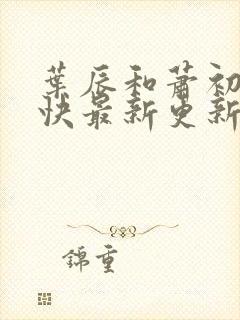 葉辰和蕭初
快最新更新
錦重